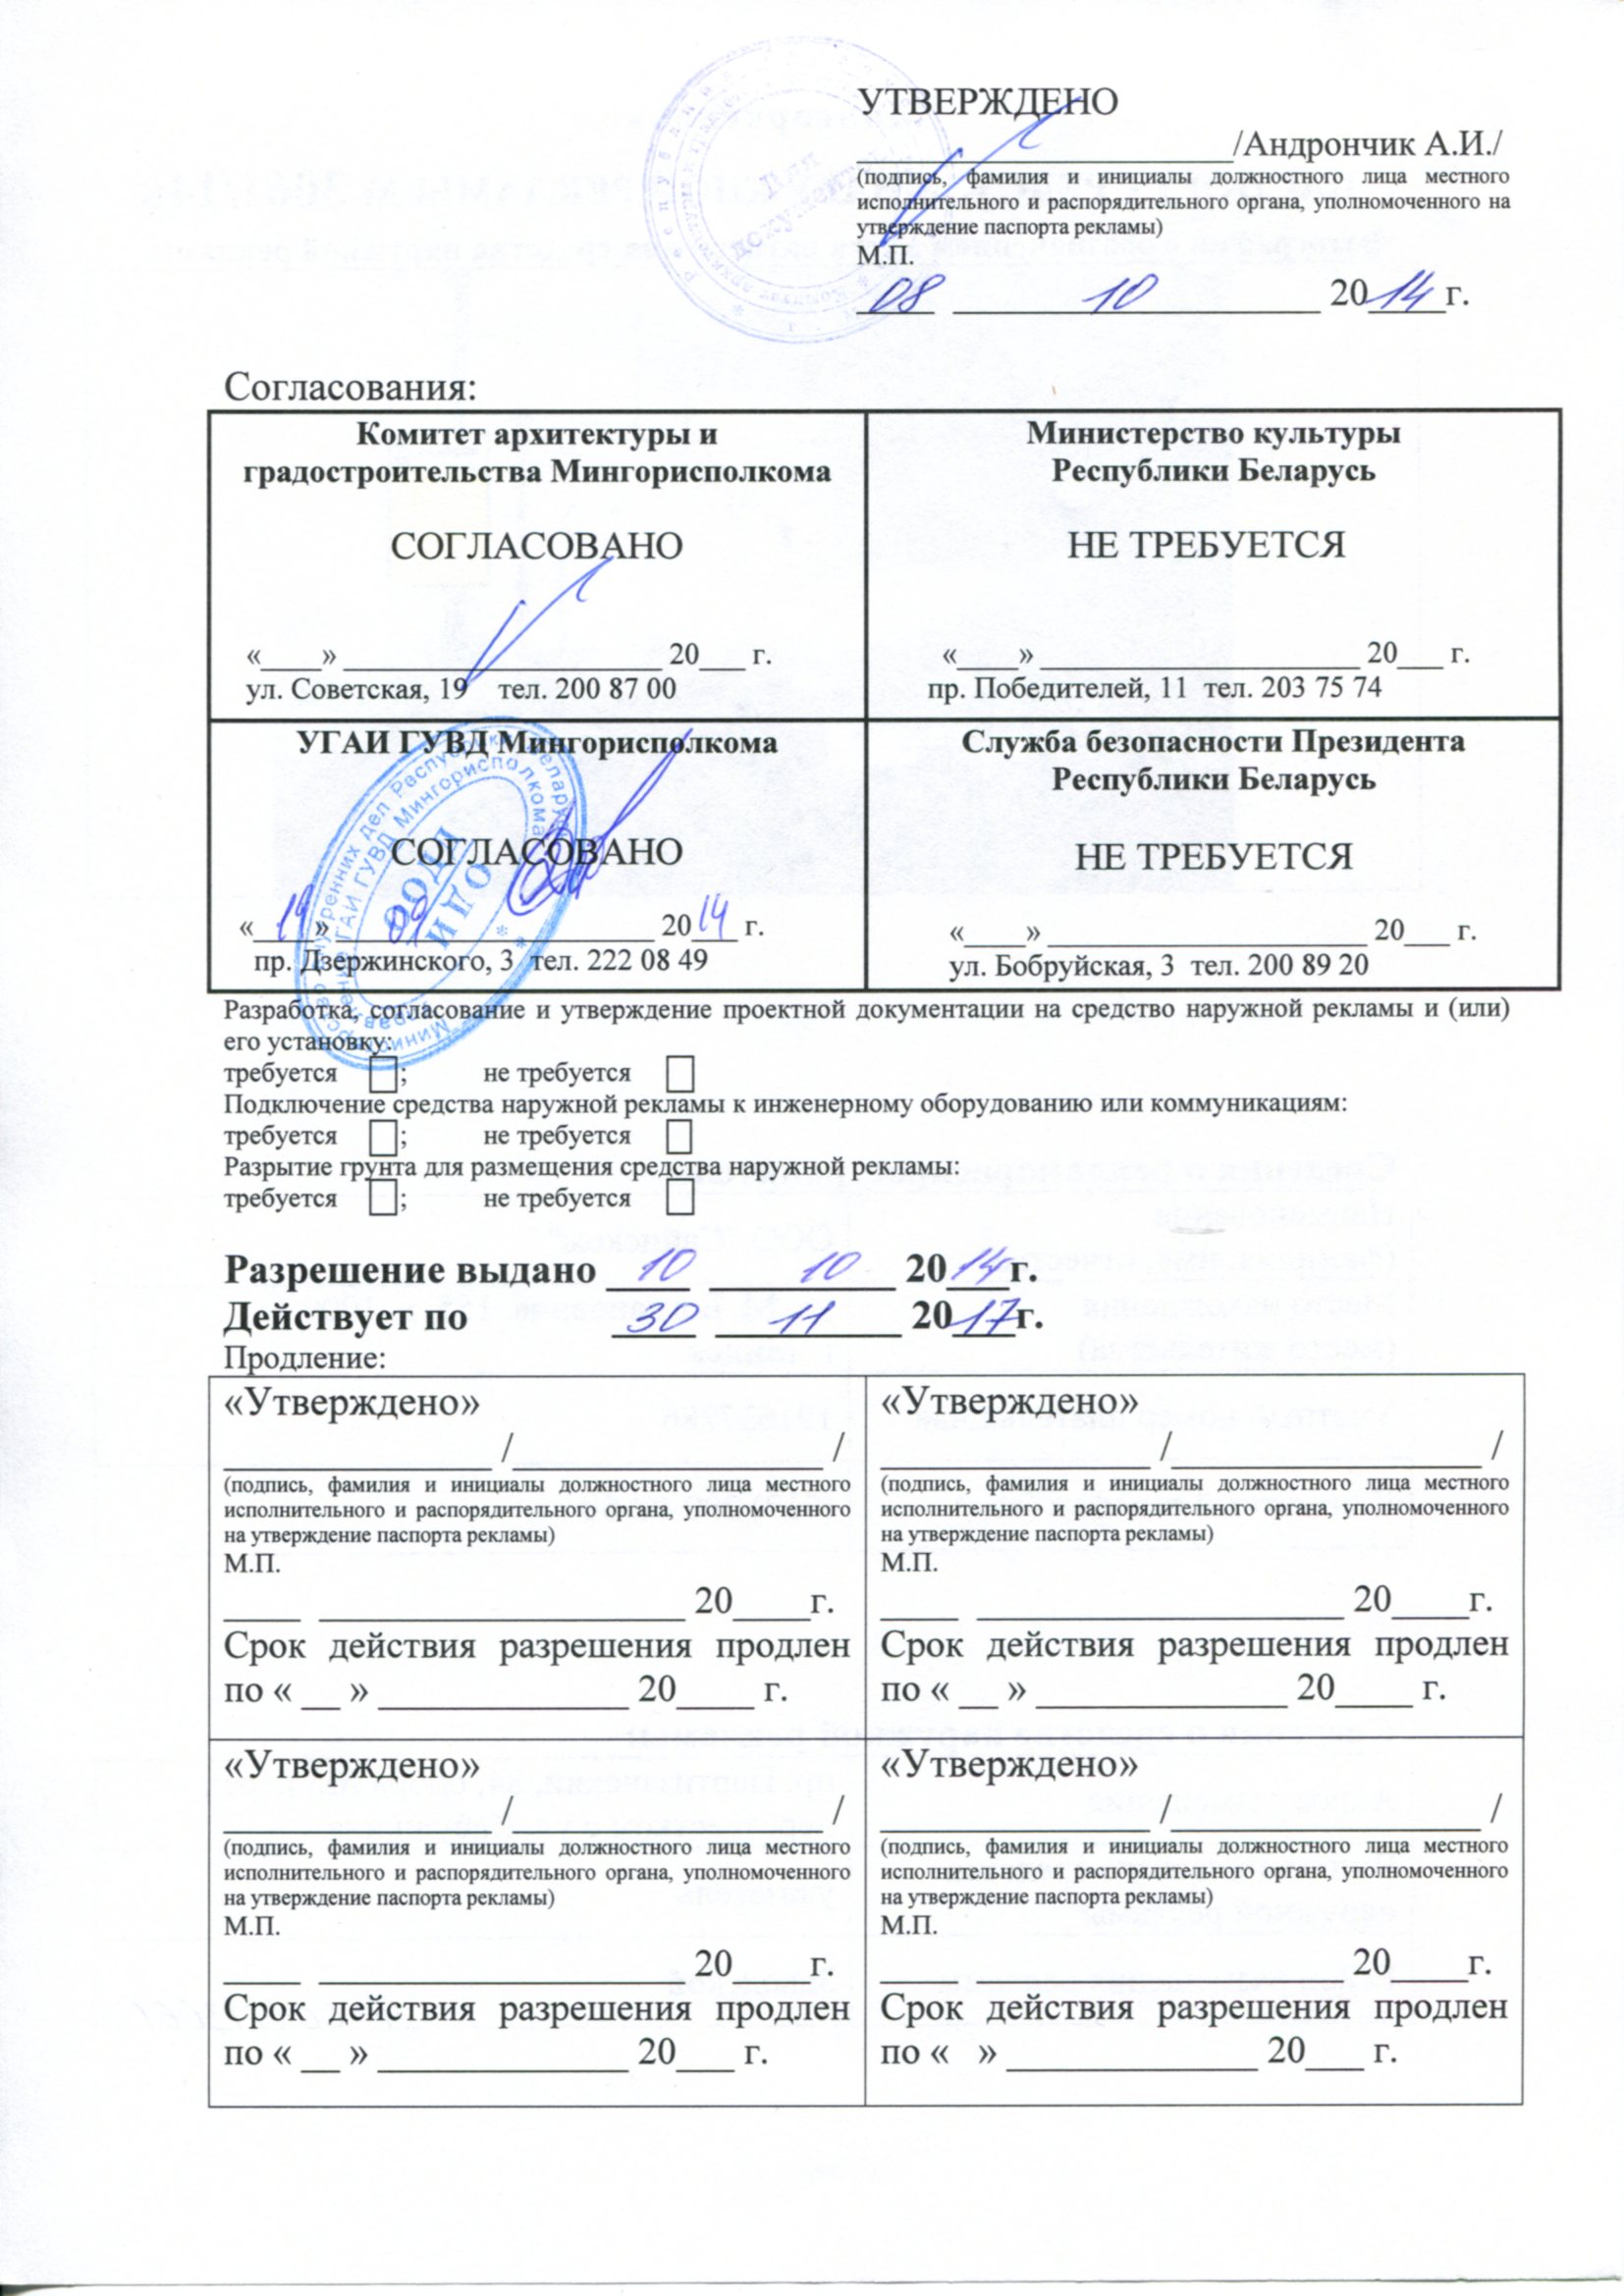 УТВЕРЖДЕНО
____________________/Андрончик А.И./
(подпись, фамилия и инициалы должностного лица местного
исполнительного и распорядительного органа, уполномоченного на
утверждение паспорта рекламы)
М.П.
08 10 2014г.
Согласования:
Комитет архитектуры и
градостроительства Мингорисполкома
СОГЛАСОВАНО
«____» _____________________ 20___ г.
ул. Советская, 19 тел. 200 87 00
Министерство культуры
Республики Беларусь
НЕ ТРЕБУЕТСЯ
«____» _____________________ 20___ г.
пр. Победителей, 11 тел. 203 75 74
УГАИ ГУВД Мингорисполкома
СОГЛАСОВАНО
«19» 09 2014 г.
пр. Дзержинского, 3 тел. 222 08 49
Служба безопасности Президента
Республики Беларусь
НЕ ТРЕБУЕТСЯ
«____» _____________________ 20___ г.
ул. Бобруйская, 3 тел. 200 89 20
Разработка, согласование и утверждение проектной документации на средство наружной рекламы и (или)
его установку:
требуется ☐; не требуется ☐
Подключение средства наружной рекламы к инженерному оборудованию или коммуникациям:
требуется ☐; не требуется ☐
Разрытие грунта для размещения средства наружной рекламы:
требуется ☐; не требуется ☐
Разрешение выдано 10 10 2014г.
Действует по 30 11 2017г.
Продление:
«Утверждено»
______________ /________________ /
(подпись, фамилия и инициалы должностного лица местного
исполнительного и распорядительного органа, уполномоченного
на утверждение паспорта рекламы)
М.П.
____ ___________________ 20____г.
Срок действия разрешения продлен
по « __ » _____________ 20____ г.
«Утверждено»
______________ /________________ /
(подпись, фамилия и инициалы должностного лица местного
исполнительного и распорядительного органа, уполномоченного
на утверждение паспорта рекламы)
М.П.
____ ___________________ 20____г.
Срок действия разрешения продлен
по « __ » _____________ 20____ г.
«Утверждено»
______________ /________________ /
(подпись, фамилия и инициалы должностного лица местного
исполнительного и распорядительного органа, уполномоченного
на утверждение паспорта рекламы)
М.П.
____ ___________________ 20____г.
Срок действия разрешения продлен
по « __ » _____________ 20___ г.
«Утверждено»
______________ /________________ /
(подпись, фамилия и инициалы должностного лица местного
исполнительного и распорядительного органа, уполномоченного
на утверждение паспорта рекламы)
М.П.
____ ___________________ 20____г.
Срок действия разрешения продлен
по « » _____________ 20___ г.